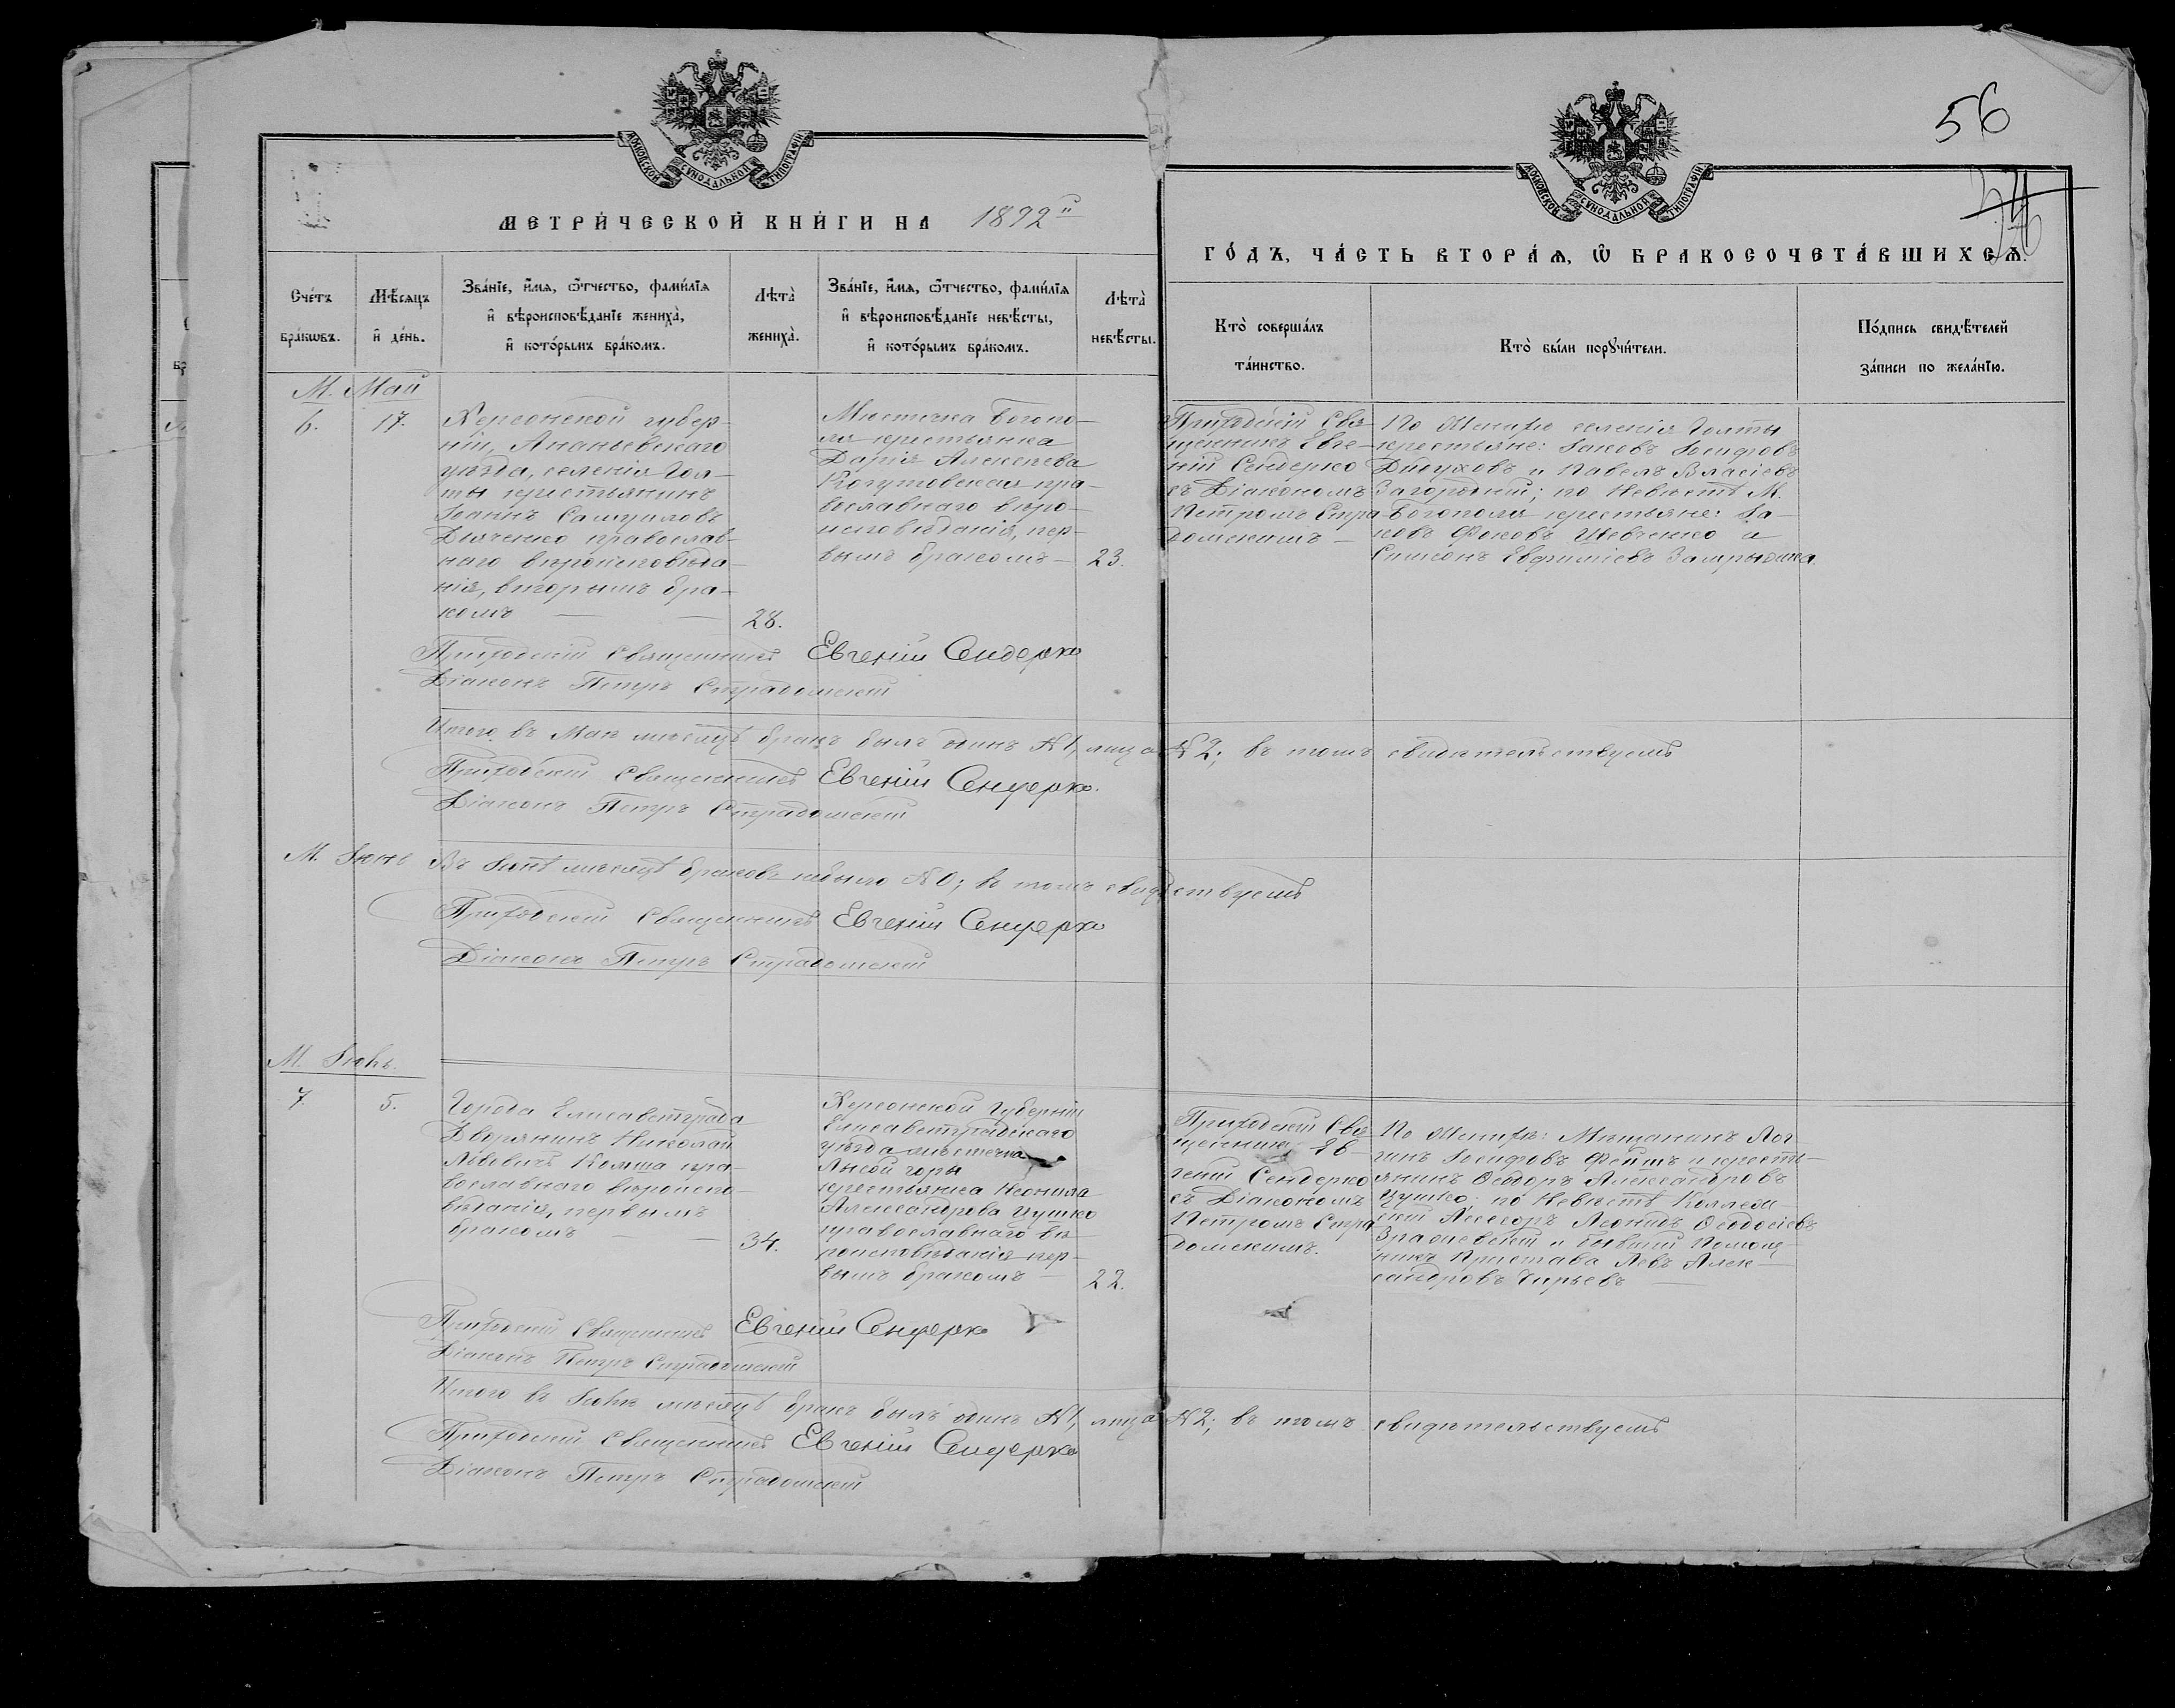 56
МОСКОВСКОЙ СѴНОДАЛЬНОЙ ТИПОГРАФІИ
МОСКОВСКОЙ СѴНОДАЛЬНОЙ ТИПОГРАФІИ
МЕТРИ́ЧЕСКОЙ КНИ́ГИ НА 1892й
ГО́ДЪ, ЧА́СТЬ ВТОРА́Ѧ, Ѡ҆ БРАКОСОЧЕТА́ВШИХСѦ.
Сче́тъ бра́кѡвъ.
Мѣ́сѧцъ и҆ де́нь.
Зва́нїе, и҆́мѧ, ѻ҆́тчество, фами́лїѧ
и҆ вѣроисповѣ́данїе жениха̀,
и҆ кото́рымъ бра́комъ.
Лѣта̀ жениха̀.
Зва́нїе, и҆́мѧ, ѻ҆́тчество, фами́лїѧ
и҆ вѣроисповѣ́данїе невѣ́сты,
и҆ кото́рымъ бра́комъ.
Лѣта̀ невѣ́сты.
Кто̀ соверша́лъ
та́инство.
Кто̀ бы́ли порꙋчи́тели.
По́дпись свидѣ́телей
за́писи по жела́нїю.
М. Май
6.
17.
Херсонской губер-
ніи, Ананьевскаго
уѣзда, селенія Гол-
ты крестьянинъ
Іоаннъ Самуиловъ
Дьяченко православ-
наго вѣроисповѣда-
нія, вторымъ бра-
комъ
28.
Мѣстечка Богопо-
ля крестьянка
Дарія Алексѣева
Когутовская пра-
вославнаго вѣро-
исповѣданія, пер-
вымъ бракомъ
23.
Приходскій Свя-
щенникъ Евге-
ній Сендерко
съ Діакономъ
Петромъ Стра-
домскимъ
По Женихѣ селенія Голты
крестьяне: Іаковъ Іосифовъ
и Павелъ Власіевъ
Загородній; по Невѣстѣ М.
Богополя крестьяне: Іа-
ковъ Фоковъ Шевченко и
Симеонъ Евфиміевъ
Приходскій Священникъ Евгеній Сендерко
Діаконъ Петръ Страдомскій
Итого въ Маѣ мѣсяцѣ бракъ былъ одинъ №1, лица №2; въ томъ свидѣтельствуемъ
Приходскій Священникъ Евгеній Сендерко.
Діаконъ Петръ Страдомскій
М. Іюнь
Въ Іюнѣ мѣсяцѣ браковъ небыло №0; въ томъ
Приходскій Священникъ Евгеній Сендерко
Діаконъ Петръ Страдомскій
М. Іюль.
7.
5.
Города Елисаветграда
Дворянинъ Николай
Львовичъ Комша пра-
вославнаго вѣроиспо-
вѣданія, первымъ
бракомъ
34.
Херсонской Губерніи
Елисаветградскаго
уѣзда мѣстечка
Лысой горы
крестьянка Неонила
Александрова Цушко
православнаго вѣ-
роисповѣданія пер-
вымъ бракомъ
22.
Приходскій Свя-
щенникъ Ев-
геній Сендерко
съ Діакономъ
Петромъ Стра-
домскимъ.
По Женихѣ: Мѣщанинъ Лог-
гинъ Іосифовъ и кресть-
янинъ Ѳеодоръ Александровъ
Цушко; по Невѣстѣ Коллеж-
скій Ассесоръ Леонидъ Ѳеодосіевъ
и бывшій Помощ-
никъ Пристава Левъ Алек-
сандровъ
Приходскій Священникъ Евгеній Сендерко
Діаконъ Петръ Страдомскій
Итого въ Іюлѣ мѣсяцѣ бракъ былъ одинъ №1, лица №2; въ томъ свидѣтельствуемъ
Приходскій Священникъ Евгеній Сендерко
Діаконъ Петръ Страдомскій